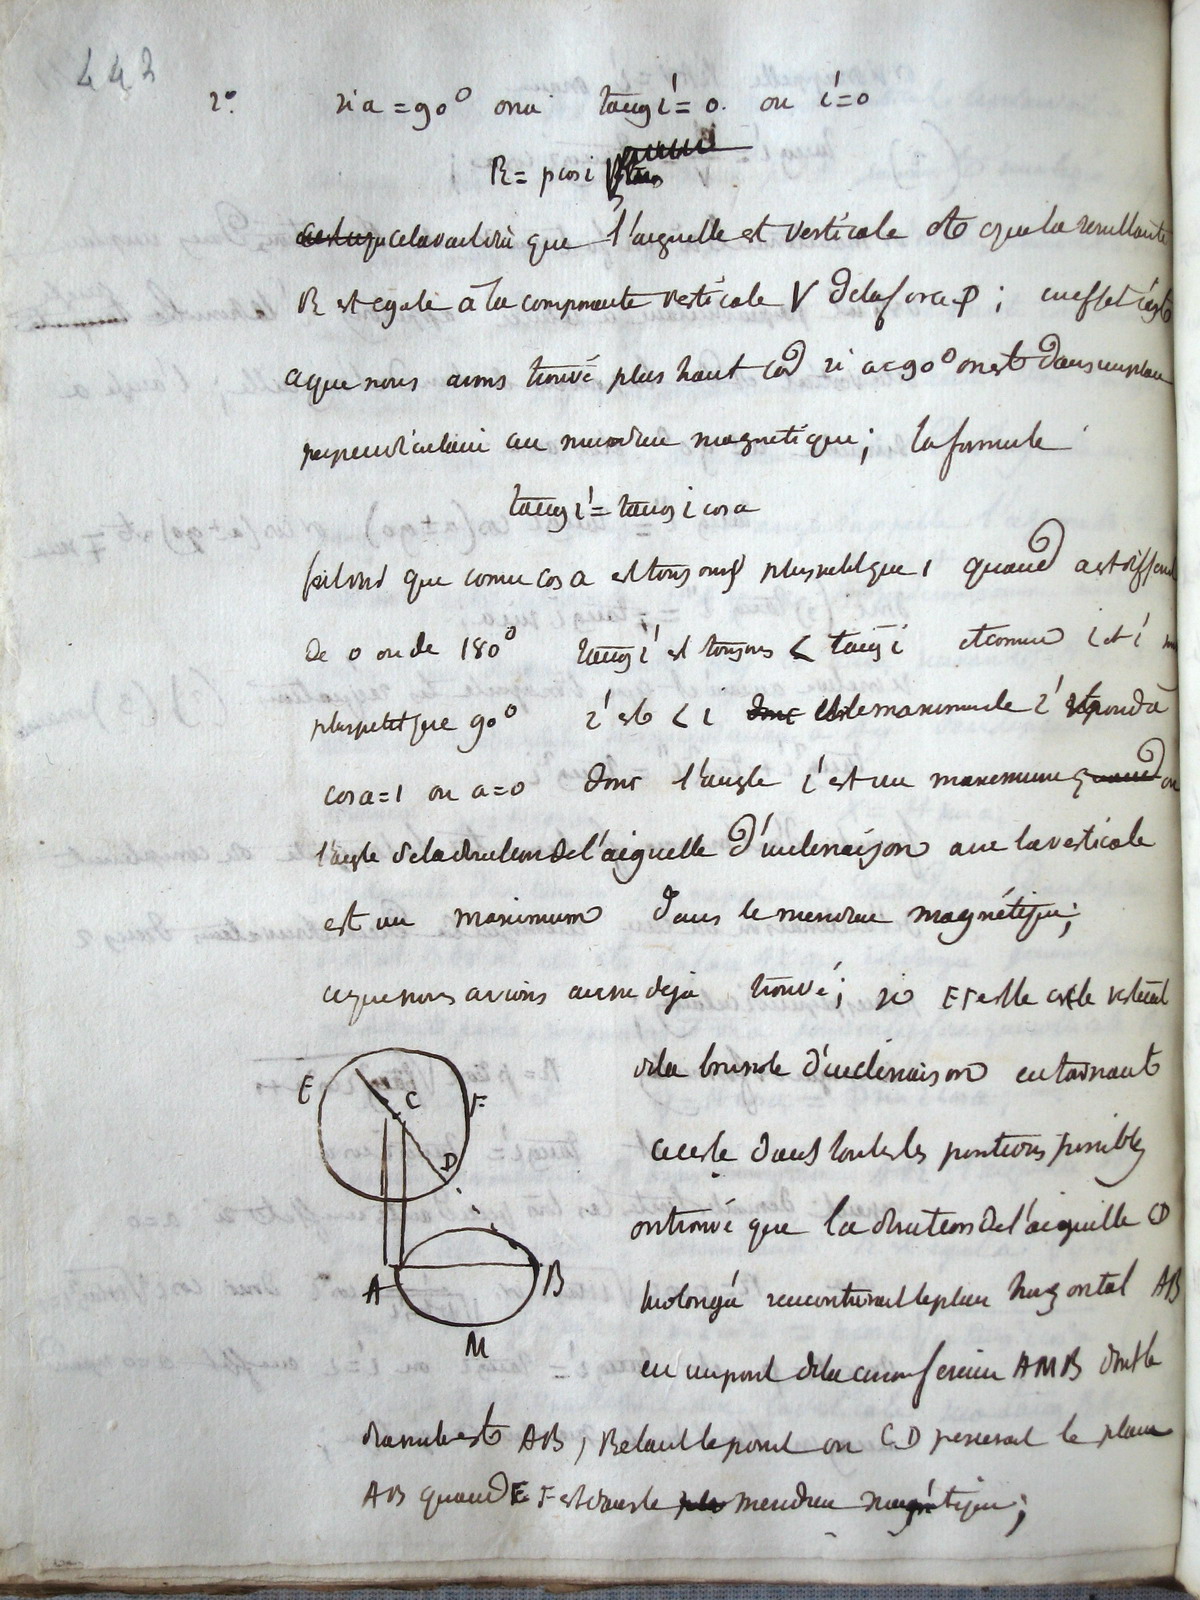 442
2°. si a = 90° on a tang i' = 0. ou i' = 0
R = p cos i
cela veut dire que l'aiguelle est verticale et que la resultante
R est egale à la composante verticale V de la force p ; en effet c'est
ce que nous avons trouvé plus haut car si a = 90° on est dans un plan
perpendiculaire au meridien magnetique ; la formule
tang i' = tang i cos a
fait voir que comme cos a est toujours plus petit que 1 quand a est different
de 0 ou de 180° tang i' est toujours < tang i et comme i et i'
plus petit que 90° i' est < i donc le maximum de i' repond à
cos a = 1 ou a = 0 donc l'angle i' est un maximum quand ou
l'angle de la direction de l'aiguelle d'inclinaison avec la verticale
est un maximum dans le meridien magnétique ;
ce que nous avions deja trouvé ; si EF est le cercle vertical
de la boussole d'inclinaison en tournant
ce cercle dans toutes les positions possibles
on trouve que la direction de l'aiguille CD
prolongée rencontrerait le plan horizontal AB
en un point de la circonference AMB dont le
diametre est AB, B etant le point ou CD perserait le plan
AB quand EF est dans le meridien magnétique ;
E
C
F
D
A
B
M